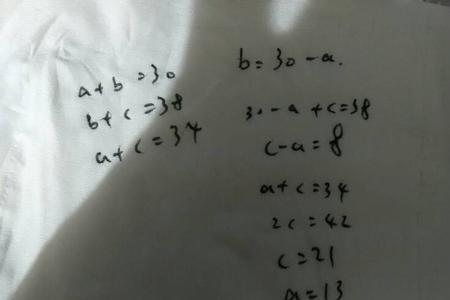 a+b=30
b+c=38
a+c=34
b=30-a.
30-a+c=38
c-a=8
a+c=34
2c=42
c=21
a=13